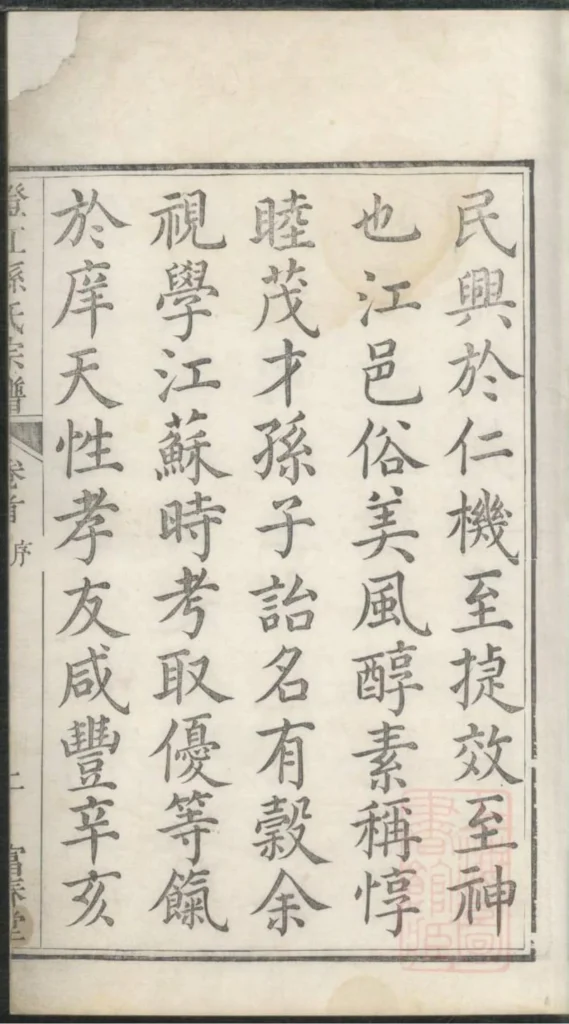 民興於仁機至捷效至神
也江邑俗美風醇素稱惇
睦茂才孫子詒名有穀余
視學江蘇時考取優等餼
於庠天性孝友咸豐辛亥
澄江孫氏宗譜
卷首
序
二
富春堂